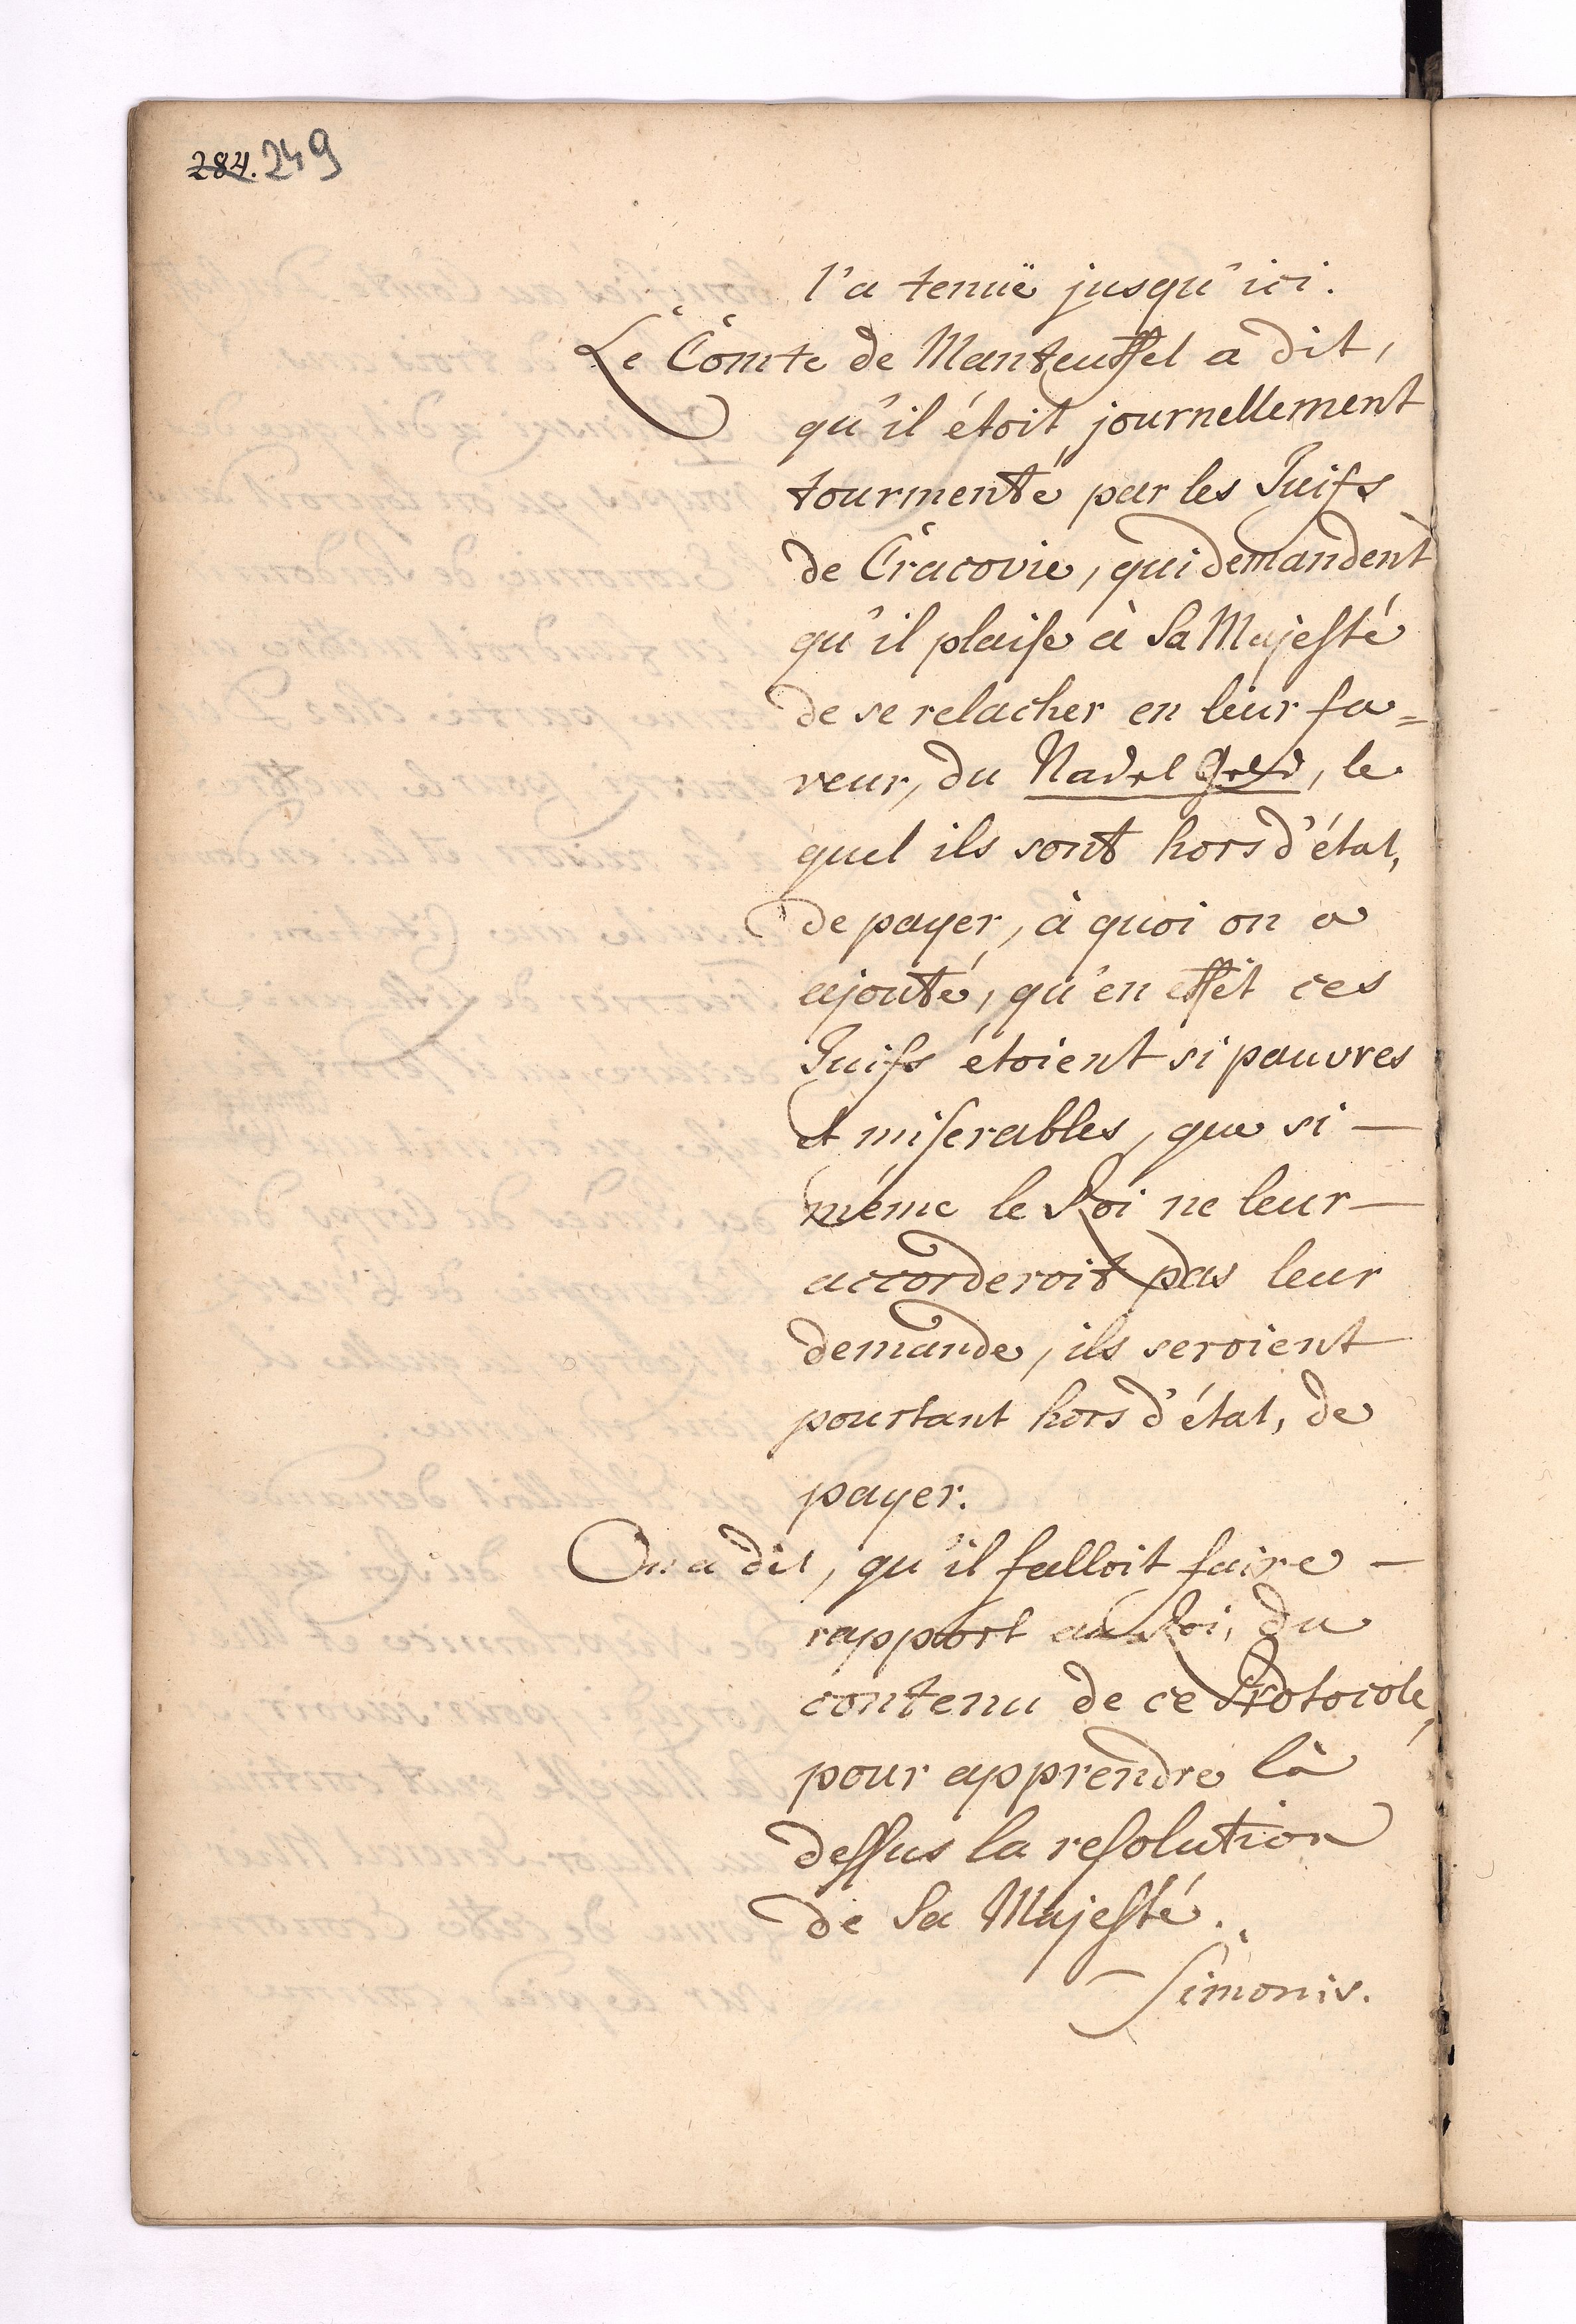 284. 249
l'a tenuë jusqu'ici.
Le Comte de Manteuffel a dit,
qu'il étoit journellement
tourmenté par les Juifs
de Cracovie, qui demandent
qu'il plaise à Sa Majesté
de se relacher en leur fa=
veur, du Nadel Geld, le
quel ils sont hors d'état,
de payer, à quoi on a
ajouté, qu'en effét ces
Juifs étoient si pauvres
et miserables, que si —
même le Roi ne leur —
accorderoit pas leur
demande, ils seroient
pourtant hors d'état, de
payer.
On a dit, qu'il falloit faire —
rapport au Roi, du
contenu de ce Protocole,
pour apprendre là
dessus la resolution
de Sa Majesté.
Simonis.